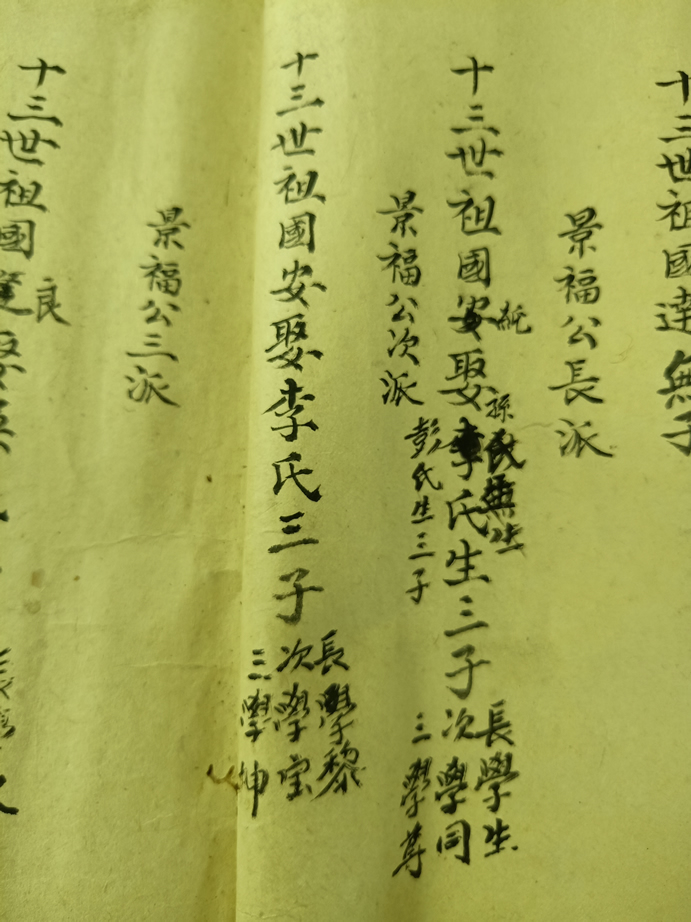 十三世祖國達無子
景福公長派
紙
孫氏無生
十三世祖國娶李氏生三子
長學生
次學同
三學尊
彭氏生三子
景福公次派
十三世祖國安娶李氏三子
長學黎
次學宝
三學坤
景福公三派
良
十三世祖國